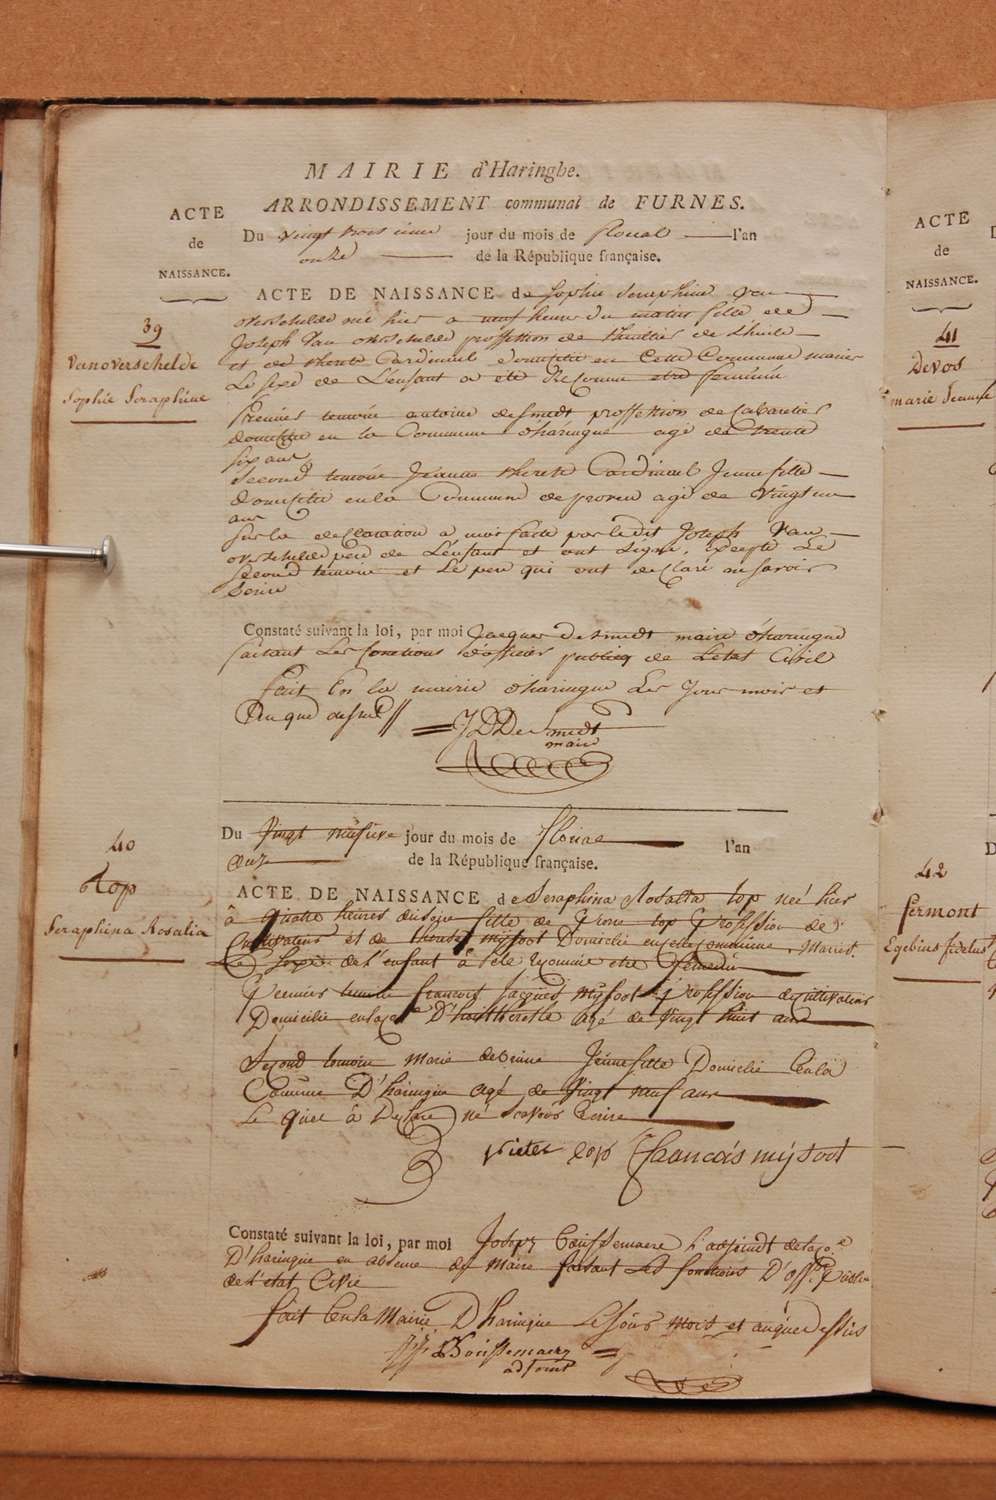 MAIRIE d'Haringhe.
ARRONDISSEMENT communal de FURNES.
ACTE
de
NAISSANCE.
Du vingt trois ieme jour du mois de floreal l'an
onze de la République française.
39
Vanoverschelde
Sophie Seraphine
ACTE DE NAISSANCE de Sophie Seraphine Van
overschelde né hier a neuf heure du matin fille de
Joseph Van overschelde profession de de Lhuile
et de therese Cardinael domicilie en Cette Commune marier
Le sexe de L'enfant a eté Reconnu etre feminin
Premier temoin antoine desmedt proffession de Cabaretier
domicilie en la Commune d'haringue agé de trente
six ans
Second temoin Jeanne therese Cardinael Jeune fille
domicilie en la Commune de proven agé de vingt un
ans
sur la declaration a moi faite par le dit Joseph Van
overschelde pere de L'enfant et ont signé, excepté Le
second temoin et Le pere qui ont declaré ne savoir
Ecrire
Constaté suivant la loi, par moi Jacques Desmedt maire d'haringue
faisant Les fonctions d'officier public de Letat Civil
Fait En la mairie d'haringue Les Jour mois et
An que dessus
JD DeSmedt
maire
40
Top
Seraphina Rosalia
Du vingt neufieme jour du mois de floreal l'an
onze de la République française.
ACTE DE NAISSANCE de Seraphina Rosalia top né hier
à quatre heures du soir fille de top profession de
Cultivateur et de therese mijsoot Domicilié en cette Commune Mariés.
Le Sexe de L'enfant à été reconnue etre femenin
Premier temoin francois Jacques mijsoot profession de cultivateur
Domicilie en la Coe D'haringhe agé de vingt huit ans
Second temoin Marie Jeune fille Domicilié En la
Commune D'haringue agé de vingt neuf ans
Le quel à Declaré ne scavoir Ecrire
Pieter top francois mijsoot
Constaté suivant la loi, par moi Joseph Coussemaere L'adjoindt de la Coe
D'haringue en absence du Maire faisant Les fonctions D'offr Public
de L'etat Civil
fait En la Mairie D'haringue Le Jour mois et an que Dessus
Coussemaere
adjoint
ACTE
de
NAISSANCE.
41
Devos
marie
42
fermont
Egebius fidelus